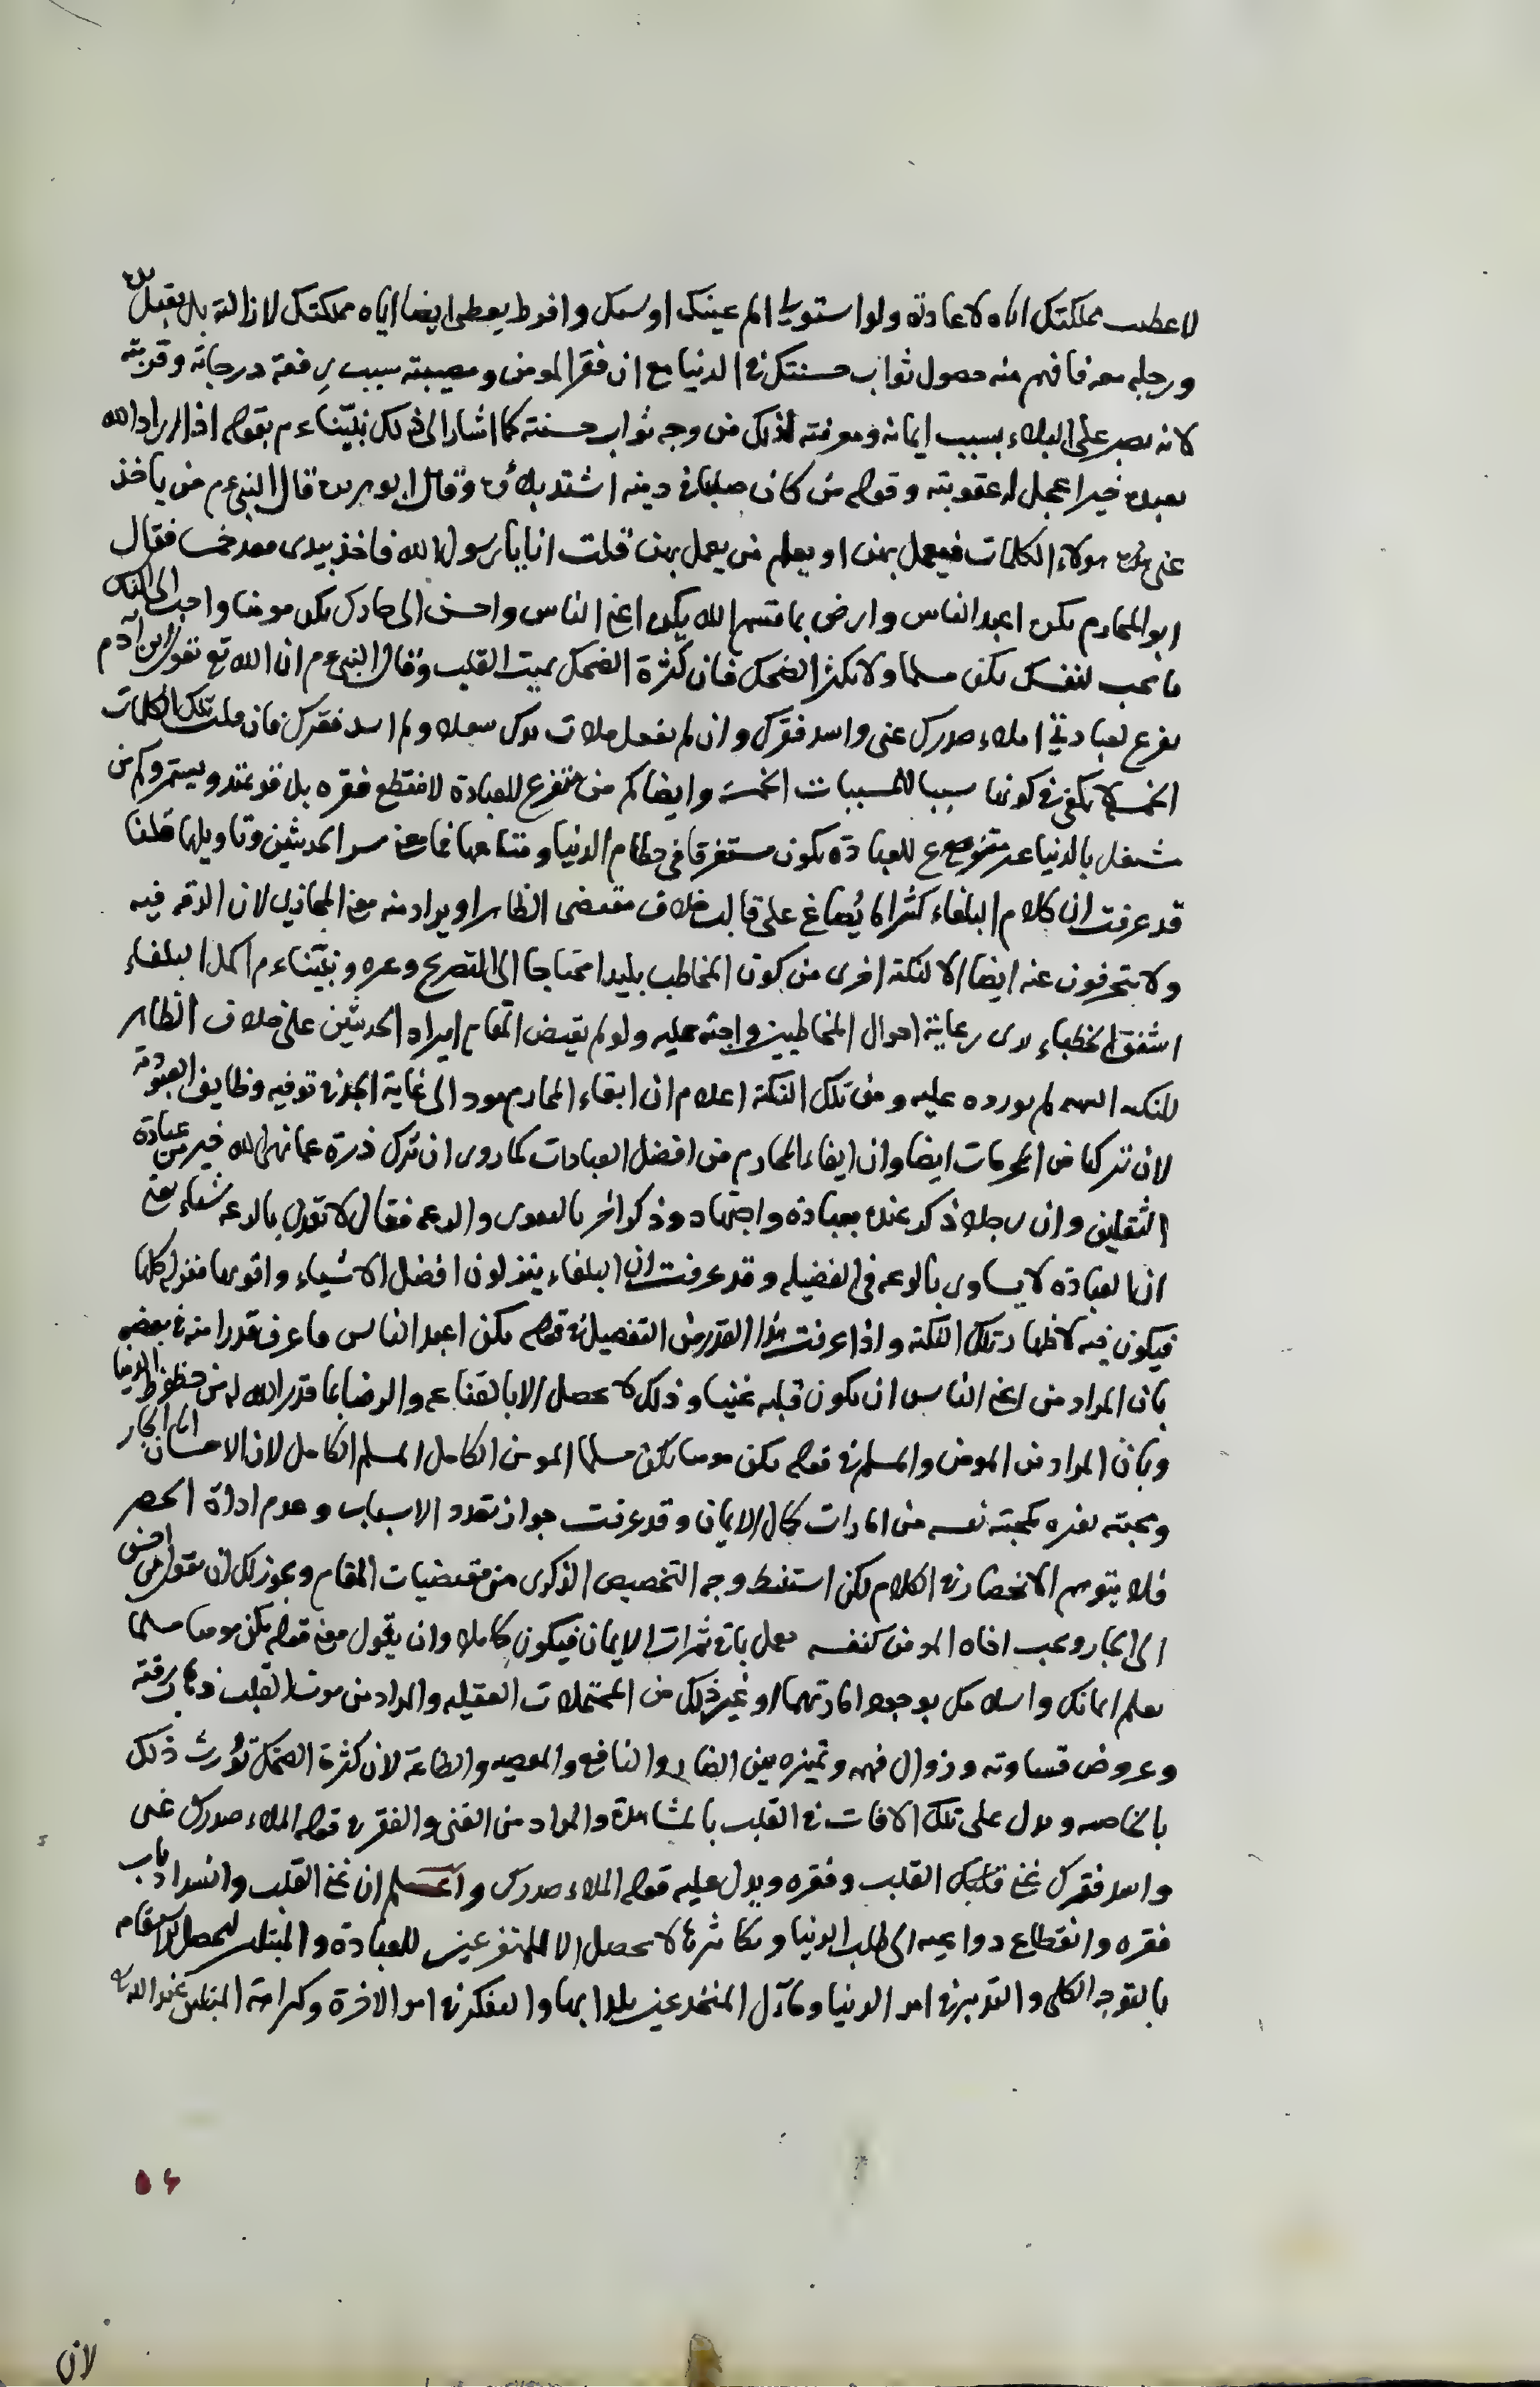 لاعطيت مملكتك اياه لاعادة ولو استولى الم عينك او سنك وافرط يعطى ايضا اياه مملكتك لازالته بل يقبل
ورجله معه فافهم منه حصول ثواب حسنتك في الدنيا مع ان فقر المومن ومصيبته سبب رفعة درجاته وقربته
لانه يصبر على البلاء بسبب ايمانه ومعرفته فذلك من وجه ثواب حسنته كما اشار الى ذلك نبيناءم بقوله اذا اراد الله
بعبده خيرا عجل له عقوبته وقوله من كان صلبا في دينه اشتد بلاؤه وقال ابو هريرة قال النبيءم من ياخذ
عنى هؤلاء الكلمات فيعمل بهن او يعلم من يعمل بهن قلت انا يا رسول الله فاخذ بيدى فعد خمسا فقال
اتق المحارم تكن اعبد الناس وارض بما قسم الله لك تكن اغنى الناس واحسن الى جارك تكن مومنا واحب للناس
ما تحب لنفسك تكن مسلما ولا تكثر الضحك فان كثرة الضحك تميت القلب وقال النبيءم ان الله تع يقول ابن آدم
تفرغ لعبادتي املاء صدرك غنى واسد فقرك وان لم تفعل ملات يدك شغلا ولم اسد فقرك فان قلت تلك الكلمات
الخمس لا تكفى في كونها سببا للمسببات الخمسة وايضا كم من متفرغ للعبادة لا ينقطع فقره بل قد يمتد ويستمر وكم من
شغل بالدنيا غير متفرغ للعبادة يكون مستغرقا في حطام الدنيا ومتاعها فما معنى هذا الحديثين وتاويلها قلنا
قد عرفت ان كلام البلغاء كثيرا ما يصاغ على قالب خلاف مقتضى الظاهر ويراد منه معنى المجازي لان الدقة فيه
ولا ينحرفون عنه ايضا الا لنكتة اخرى من كون المخاطب بليدا محتاجا الى التصريح وغيره ونبيناءم اكمل البلغاء
اشفق الخطباء لدى رعاية احوال المخاطبين واجبة عليه ولو لم يقتض المقام ايراد الحديثين على خلاف الظاهر
للنكتة المهمة لم يورده عليه ومن تلك النكتة اعلام ان اتقاء المحارم يعود الى غاية الجد في توفيه وظايف العبودية
لان تركها من المحرمات ايضا وان اتقاء المحارم من افضل العبادات كما روى ان ترك ذرة مما نهى الله خير من عبادة
الثقلين وان رجلا ذكر عنده بعبادة واجتهاد وذكر آخر بالتقوى والورع فقال لا تعدل بالورع شيئا يعنى
ان العبادة لا يساوى بالورع في الفضيلة وقد عرفت ان البلغاء ينزلون افضل الاشياء واقويها منزلة كلها
فيكون فيه لاظهار تلك النكتة واذا عرفت هذا القدر من التفصيل في قوله تكن اعبد الناس فاعرف قدرا منه في بعضه
بان المراد من اغنى الناس ان يكون قلبه غنيا وذلك لا يحصل الا بالقناعة والرضا بما قدر الله له من حظوظ الدنيا
وبان المراد من المومن والمسلم في قوله تكن مومنا تكن مسلما المومن الكامل المسلم الكامل لان الاحسان الى الجار
ومحبته لغيره كمحبته لنفسه من امارات كمال الايمان وقد عرفت جواز تعدد الاسباب وعدم اداة الحصر
فلا يتوهم الانحصار في الكلام لكن استنبط وجه التخصيص الذكرى من مقتضيات المقام ويجوز لك ان تقول من احسن
الى الجار ويحب اخاه المومن كنفسه يعمل باقى ثمرات الايمان فيكون كاملا وان يقول معنى قوله تكن مومنا مسلما
يعلم ايمانك واسلامك بوجود امارتهما او غير ذلك من المحتملات العقلية والمراد من موت القلب ذهاب رقته
وعروض قساوته وزوال فهمه وتميزه بين الضار والنافع والمعصية والطاعة لان كثرة الضحك تورث ذلك
بالخاصة ويدل على تلك الافات في القلب بالمشاهدة والمراد من الغنى والفقر في قوله املاء صدرك غنى
واسد فقرك غنى القلب وفقره ويدل عليه قوله املاء صدرك واعلم ان غنى القلب وانسداد باب
فقره وانقطاع دواعيه الى طلب الدنيا وتكاثرها لا يحصل الا للمتفرغين للعبادة والمتبتل ليحصل له المقام
بالتوجه الكلى والتدبر في امر الدنيا ومآل المنخدعين بلذاتها والتفكر في امر الاخرة وكرامة المتبتلين عند الله
٥٦
لان